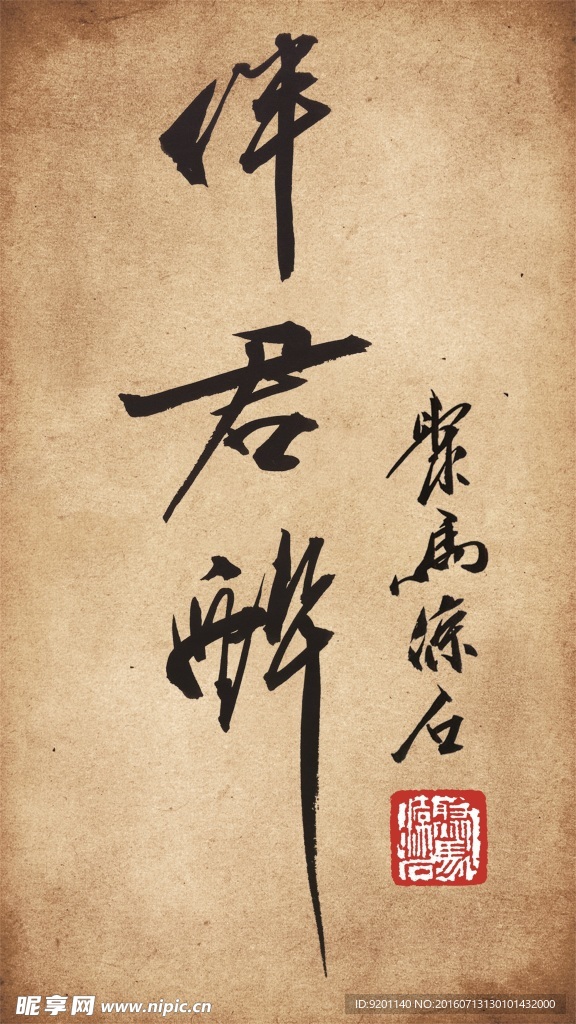 伴君醉
聚马凉石
昵享网 www.nipic.cn
ID:9201140 NO:20160713130101432000